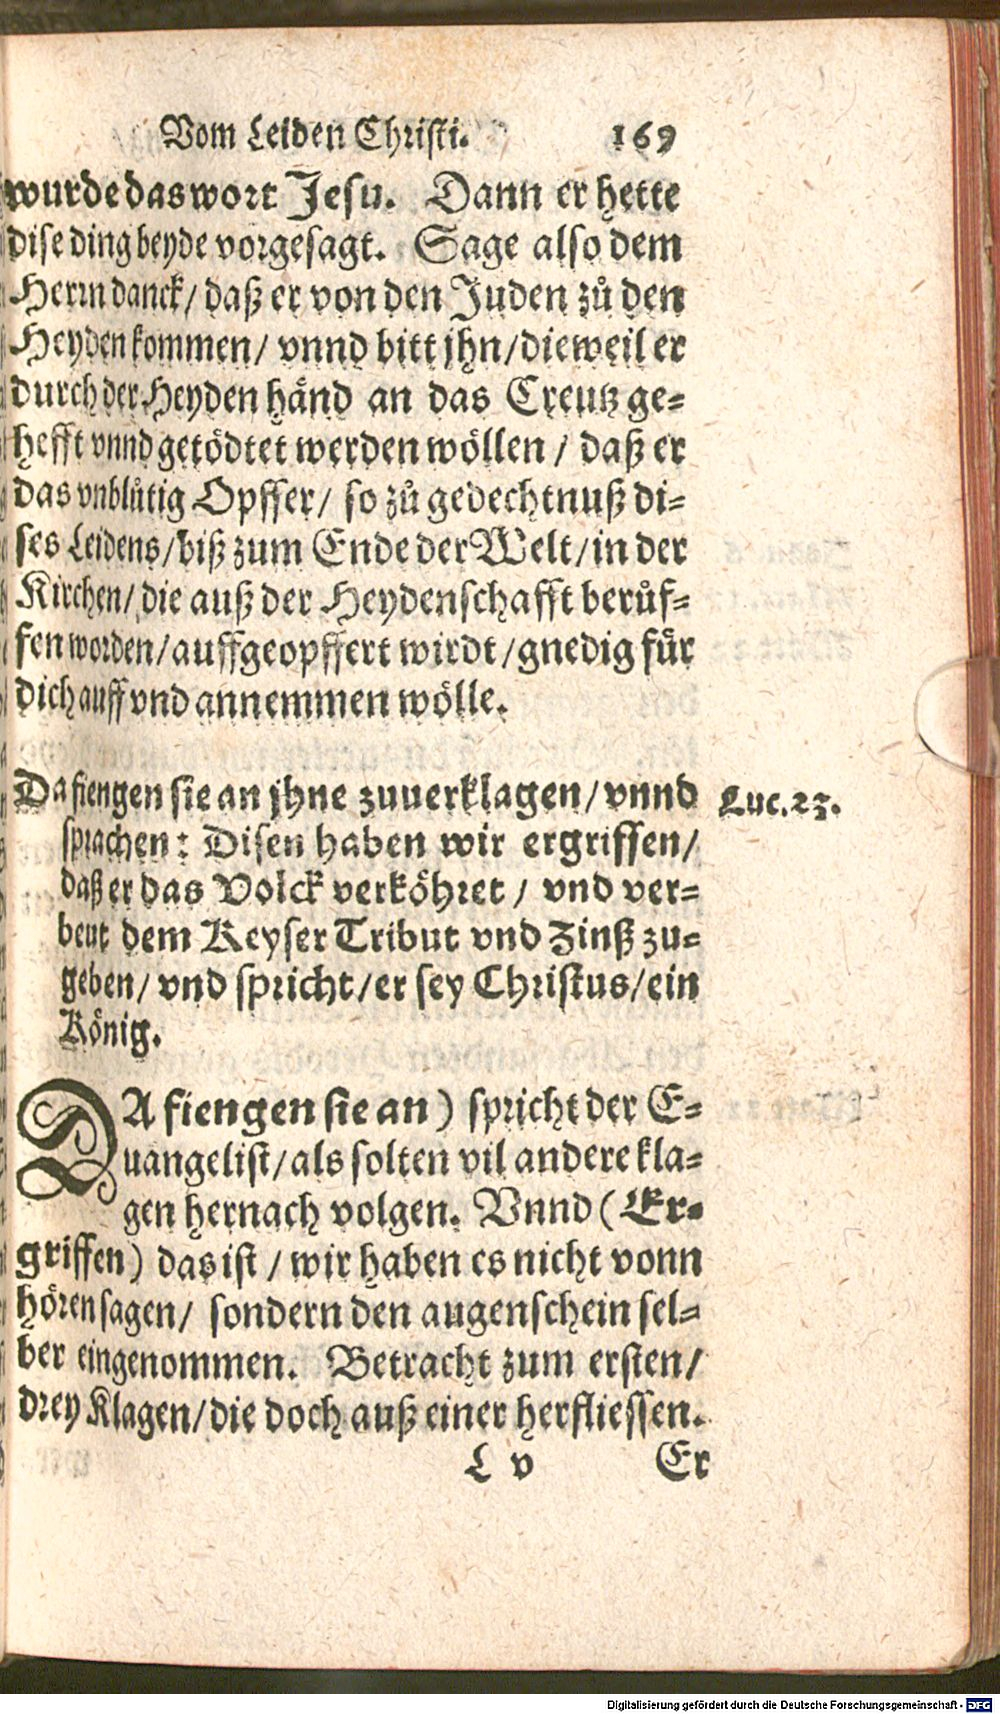 Vom Leiden Christi. 169
wurde das wort Jesu. Dann er hette
dise ding beyde vorgesagt. Sage also dem
Herrn danck/ daß er von den Juden zů den
Heyden kommen/ vnnd bitt jhn/ dieweil er
durch der Heyden händ an das Creutz ge-
hefft vnnd getödtet werden wöllen/ daß er
das vnblůtig Opffer/ so zů gedechtnuß di-
ses Leidens/ biß zum Ende der Welt/ in der
Kirchen/ die auß der Heydenschafft berůf-
fen worden/ auffgeopffert wirdt/ gnedig für
dich auff vnd annemmen wölle.
Da fiengen sie an jhne zuuerklagen/ vnnd
Luc. 23.
sprachen: Disen haben wir ergriffen/
daß er das Volck verköhret/ vnd ver-
beut dem Keyser Tribut vnd Zinß zu-
geben/ vnd spricht/ er sey Christus/ ein
König.
DA fiengen sie an) spricht der E-
uangelist/ als solten vil andere kla-
gen hernach volgen. Vnnd (Er-
griffen) das ist/ wir haben es nicht vonn
hören sagen/ sondern den augenschein sel-
ber eingenommen. Betracht zum ersten/
drey Klagen/ die doch auß einer herfliessen.
L v Er
Digitalisierung gefördert durch die Deutsche Forschungsgemeinschaft - DFG